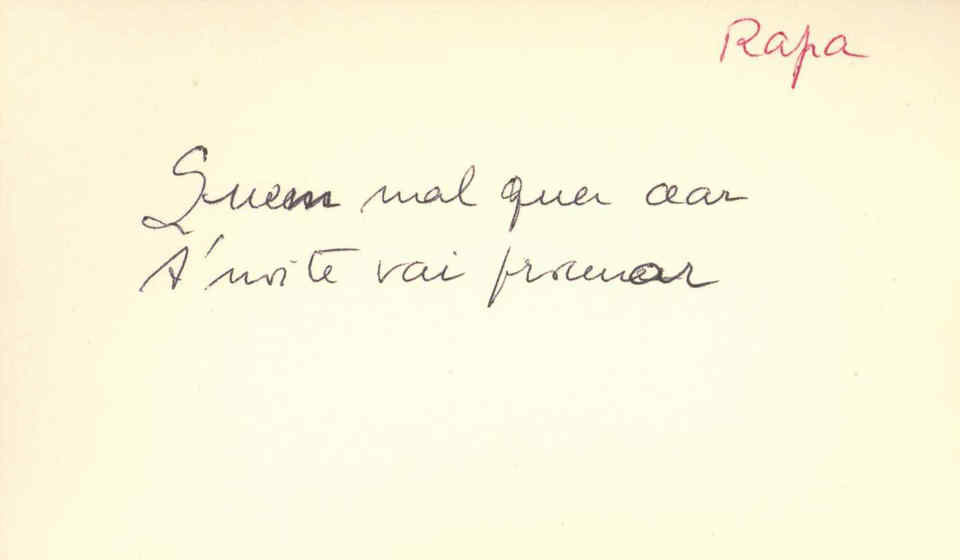 Rapa
Quem mal quer cear
À noite vai procurar